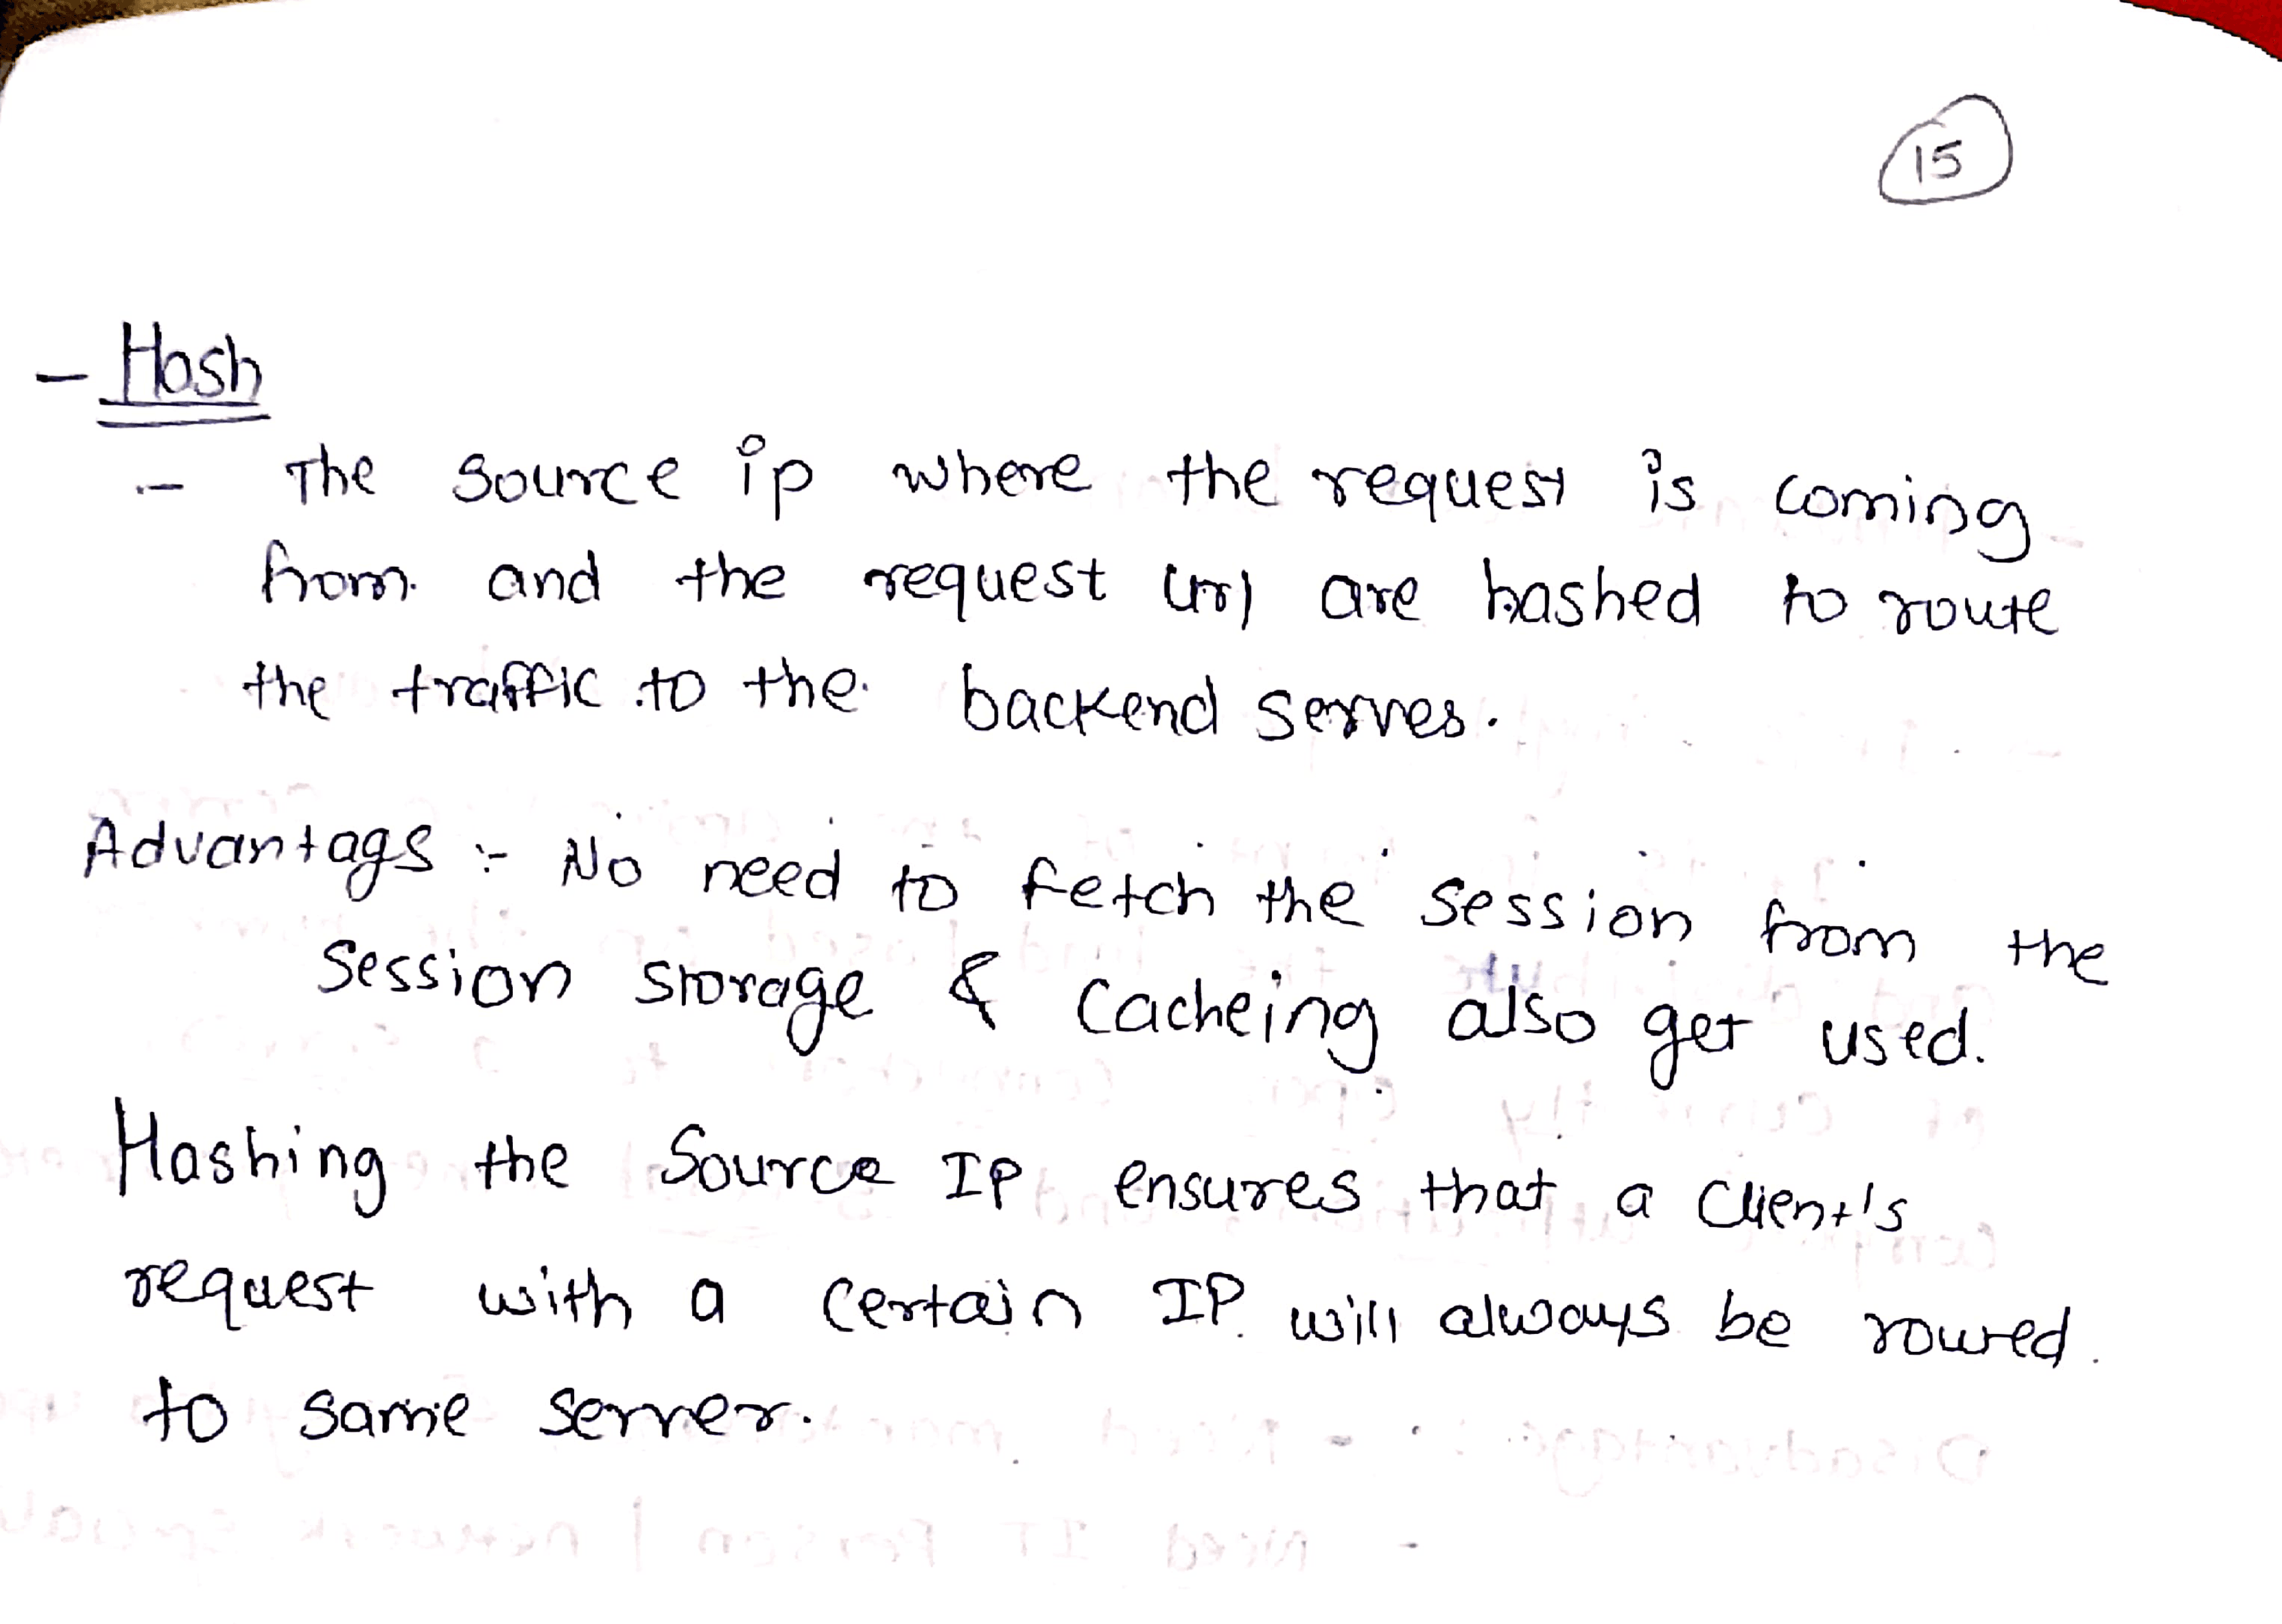 15
- Hash
- The source ip where the request is coming
from and the request url are hashed to route
the traffic to the backend serves.
Advantags :- No need to fetch the session from the
session storage & Cacheing also get used.
Hashing the Source IP ensures that a Client's
request with a certain IP will always be routed
to same server.